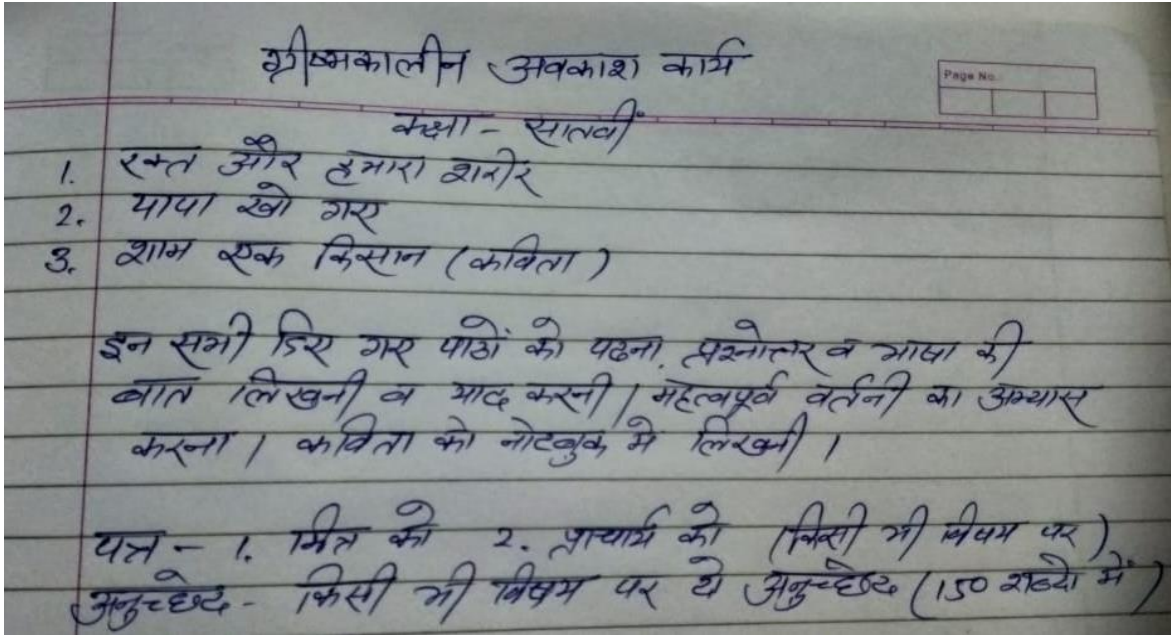 ग्रीष्मकालीन अवकाश कार्य
Page No.
कक्षा - सातवीं
1. रक्त और हमारा शरीर
2. पापा खो गए
3. शाम एक किसान (कविता)
इन सभी दिए गए पाठों को पढना, प्रश्नोत्तर व भाषा की
बात लिखनी व याद करनी। महत्वपूर्व वर्तनी का अभ्यास
करना। कविता को नोटबुक में लिखनी।
पत्र - 1. मित्र को 2. प्राचार्य को (किसी भी विषय पर)
अनुच्छेद - किसी भी विषय पर दो अनुच्छेद (150 शब्दों में)